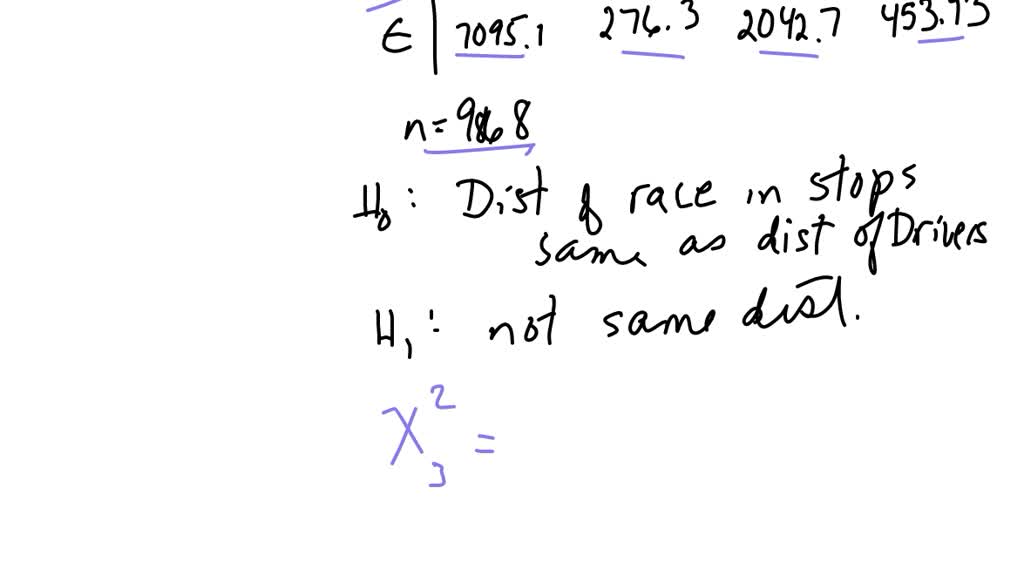 E | 7095.1 276.3 2042.7 453.93
n = 9868
H₀ : Dist of race in stops
same as dist of Drivers
H₁ : not same dist.
X²₃ =